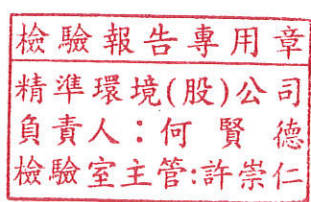 檢驗報告專用章
精準環境(股)公司
負責人：何賢德
檢驗室主管:許崇仁